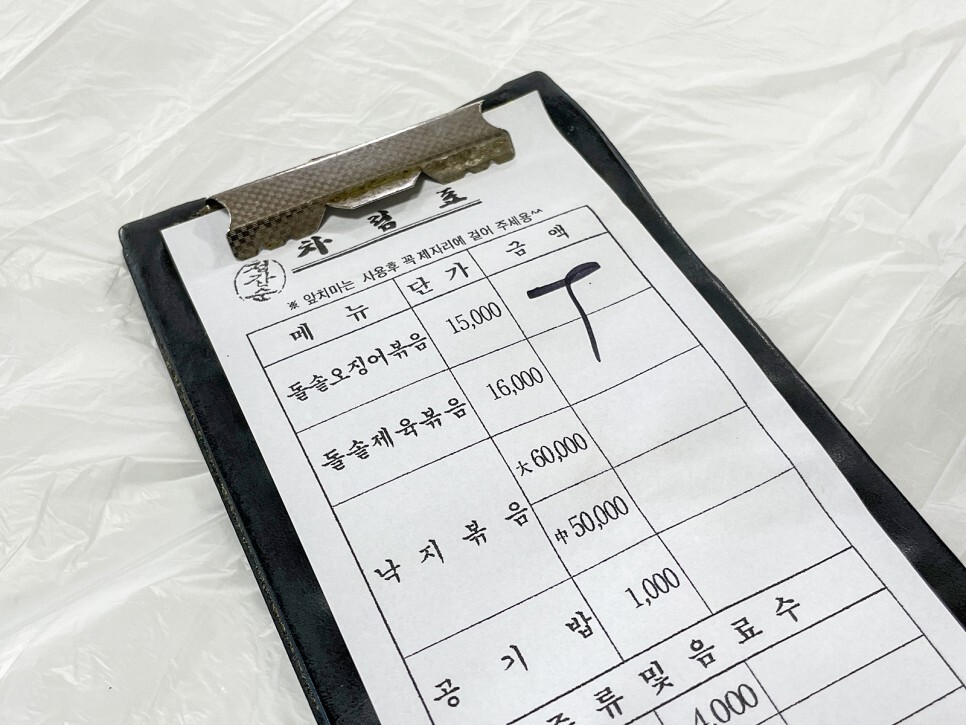 차림표
※ 앞치마는 사용후 꼭 제자리에 걸어 주세용^^
메뉴 단가 금액
돌솥오징어볶음 15,000
돌솥제육볶음 16,000
낙지볶음 大 60,000
中 50,000
공기밥 1,000
주류및음료수
4,000